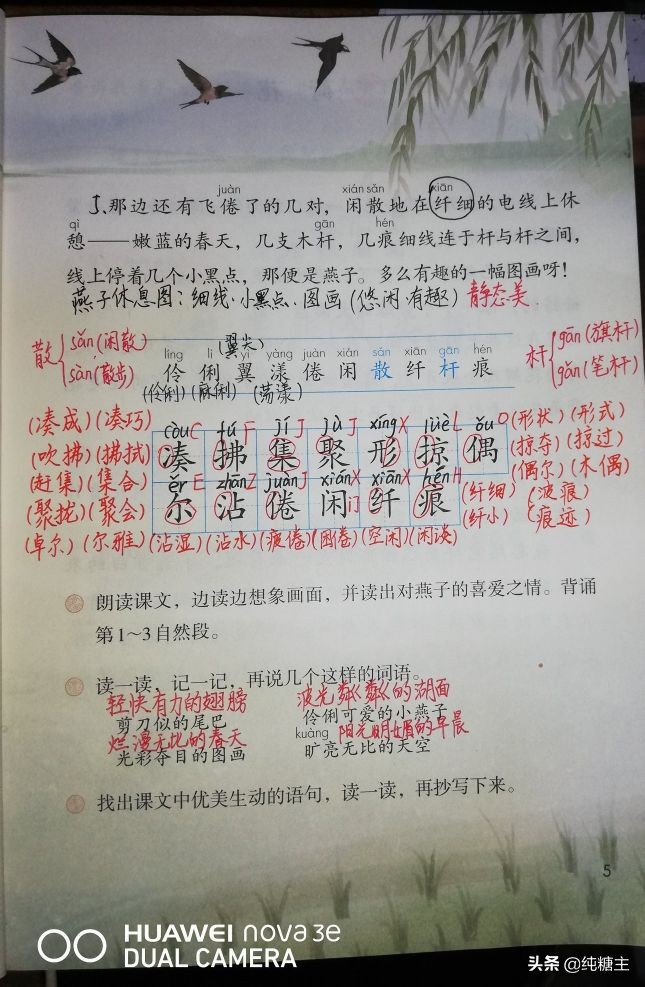 juàn xián sǎn xiān
5、那边还有飞倦了的几对，闲散地在纤细的电线上休
qì gān hén
憩——嫩蓝的春天，几支木杆，几痕细线连于杆与杆之间，
线上停着几个小黑点，那便是燕子。多么有趣的一幅图画呀！
燕子休息图：细线·小黑点·图画(悠闲·有趣) 静态美
散 sǎn(闲散) sàn(散步)
(翼尖)
杆 gān(旗杆) gǎn(笔杆)
líng lì yì yàng juàn xián sǎn xiān gān hén
伶 俐 翼 漾 倦 闲 散 纤 杆 痕
(伶俐) (麻俐) (荡漾)
(凑成)(凑巧) còu C fú F jí J jù J xíng X lüè L ǒu O (形状)(形式)
(吹拂)(拂拭) 凑 拂 集 聚 形 掠 偶 (掠夺)(掠过)
(赶集)(集合) ěr E zhān Z juàn J xián X xiān X hén H (偶尔)(木偶)
(聚拢)(聚会) 尔 沾 倦 闲 纤 痕 (纤细)(波痕)
(纤小)(痕迹)
(卓尔)(尔雅)(沾湿)(沾水)(疲倦)(困倦)(空闲)(闲谈)
朗读课文，边读边想象画面，并读出对燕子的喜爱之情。背诵
第1～3自然段。
读一读，记一记，再说几个这样的词语。
轻快有力的翅膀 波光粼粼的湖面
剪刀似的尾巴 伶俐可爱的小燕子
烂漫无比的春天 kuàng 阳光明媚的早晨
光彩夺目的图画 旷亮无比的天空
找出课文中优美生动的语句，读一读，再抄写下来。
5
HUAWEI nova 3e
DUAL CAMERA
头条 @纯糖主